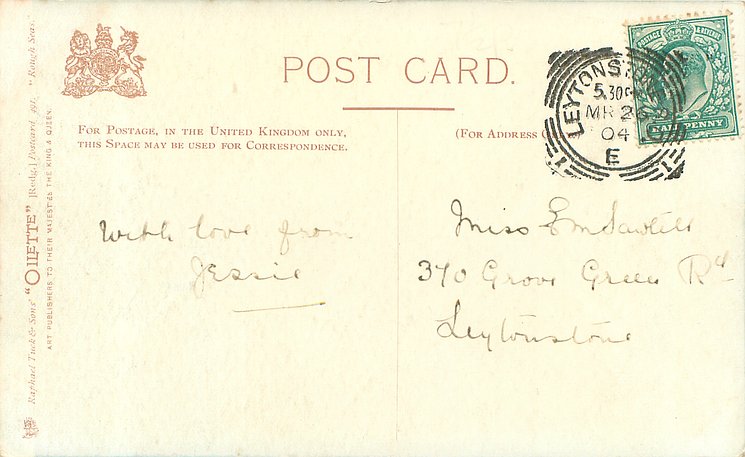 POST CARD.
FOR POSTAGE, IN THE UNITED KINGDOM ONLY,
THIS SPACE MAY BE USED FOR CORRESPONDENCE.
(FOR ADDRESS
With love from
Jessie
Miss
370 Grove Green Rd
Leytonstone
LEYTONSTONE
5.30 PM
MR 26
04
E
POSTAGE & REVENUE
HALFPENNY
Raphael Tuck & Sons' "OILETTE" [Regd.] Postcard 1491. "Rough Seas."
ART PUBLISHERS TO THEIR MAJESTIES THE KING & QUEEN.